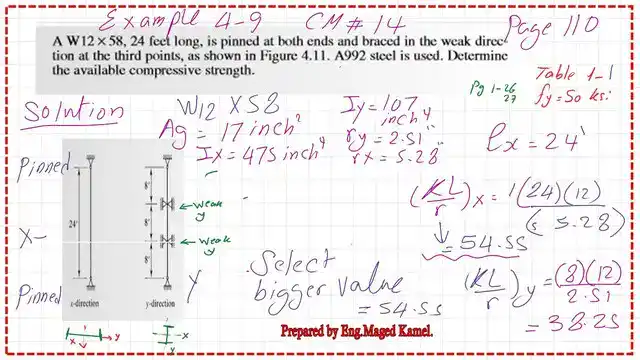 Example 4-9 CM#14 Page 110
A W12 × 58, 24 feet long, is pinned at both ends and braced in the weak direc-
tion at the third points, as shown in Figure 4.11. A992 steel is used. Determine
the available compressive strength.
Pg 1-26
27
Table 1-1
fy = 50 ksi
Solution
W12 X 58
Ag = 17 inch²
Ix = 475 inch⁴
Iy = 107
inch⁴
ry = 2.51"
rx = 5.28"
lx = 24'
Pinned
X-
Pinned
24'
8'
8'
8'
x-direction
y-direction
← Weak
y
← Weak
y
Y
x
y
x
(KL/r)x = 1(24)(12)/(5.28)
= 54.55
Select
bigger value
= 54.55
(KL/r)y = (8)(12)/2.51
= 38.25
Prepared by Eng.Maged Kamel.